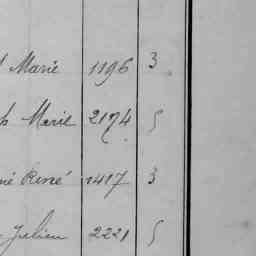 Marie 1196 3
Marie 2174 5
né René 1417 3
Julien 2221 5